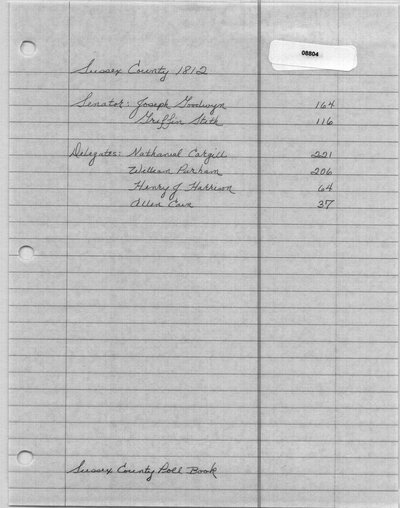 08804
Sussex County 1812
Senator: Joseph Goodwyn 164
Griffin Stith 116
Delegates: Nathaniel Cargill 221
William Parham 206
Henry J Harrison 64
Allen Cain 37
Sussex County Poll Book